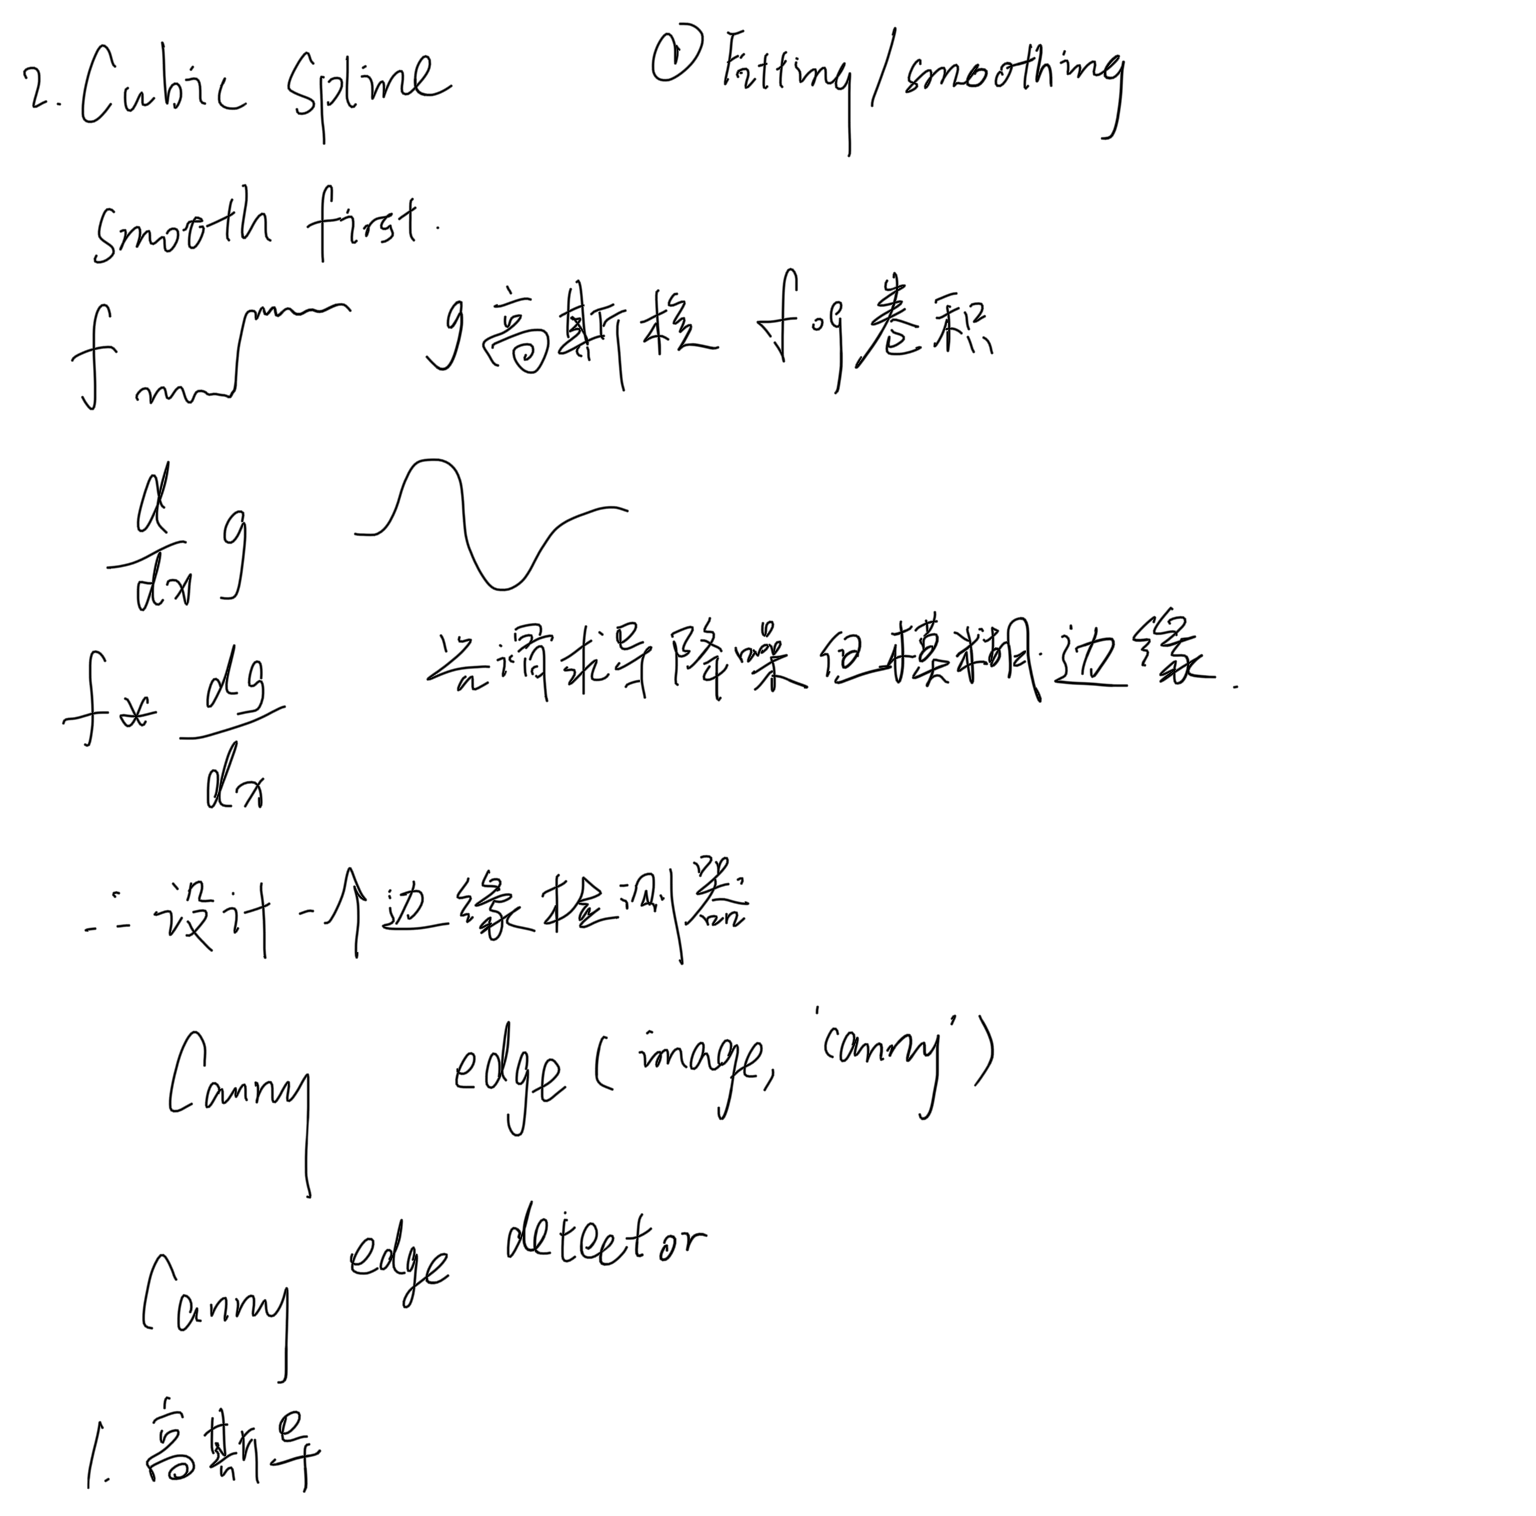 2. Cubic Spline ① Fitting/smoothing
smooth first.
f g高斯核 f∘g卷积
d/dx g
f * dg/dx 求导降噪但模糊边缘.
∴设计一个边缘检测器
Canny edge(image, 'canny')
Canny edge detector
1. 高斯导